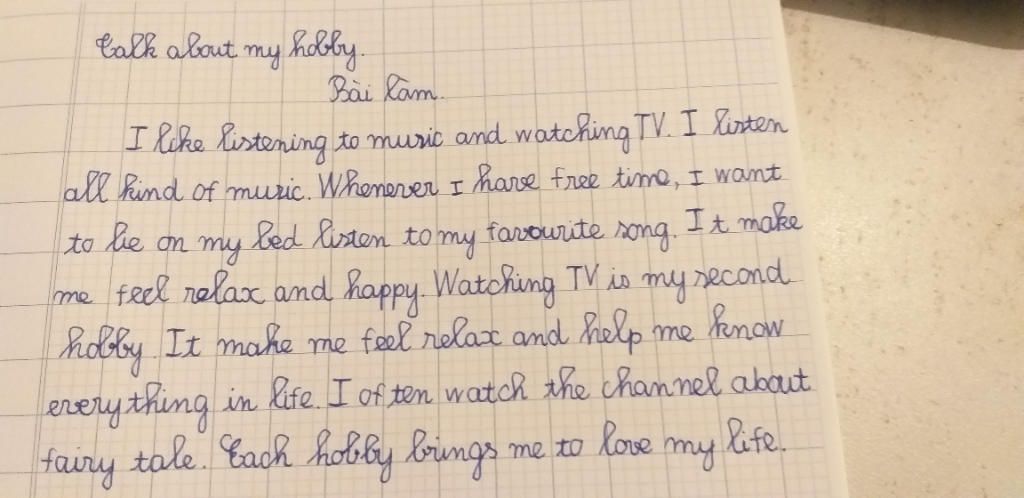 Talk about my hobby.
Bài làm.
I like listening to music and watching TV. I listen
all kind of music. Whenever I have free time, I want
to lie on my bed listen to my favourite song. It make
me feel relax and happy. Watching TV is my second
hobby. It make me feel relax and help me know
everything in life. I often watch the channel about
fairy tale. Each hobby brings me to love my life.